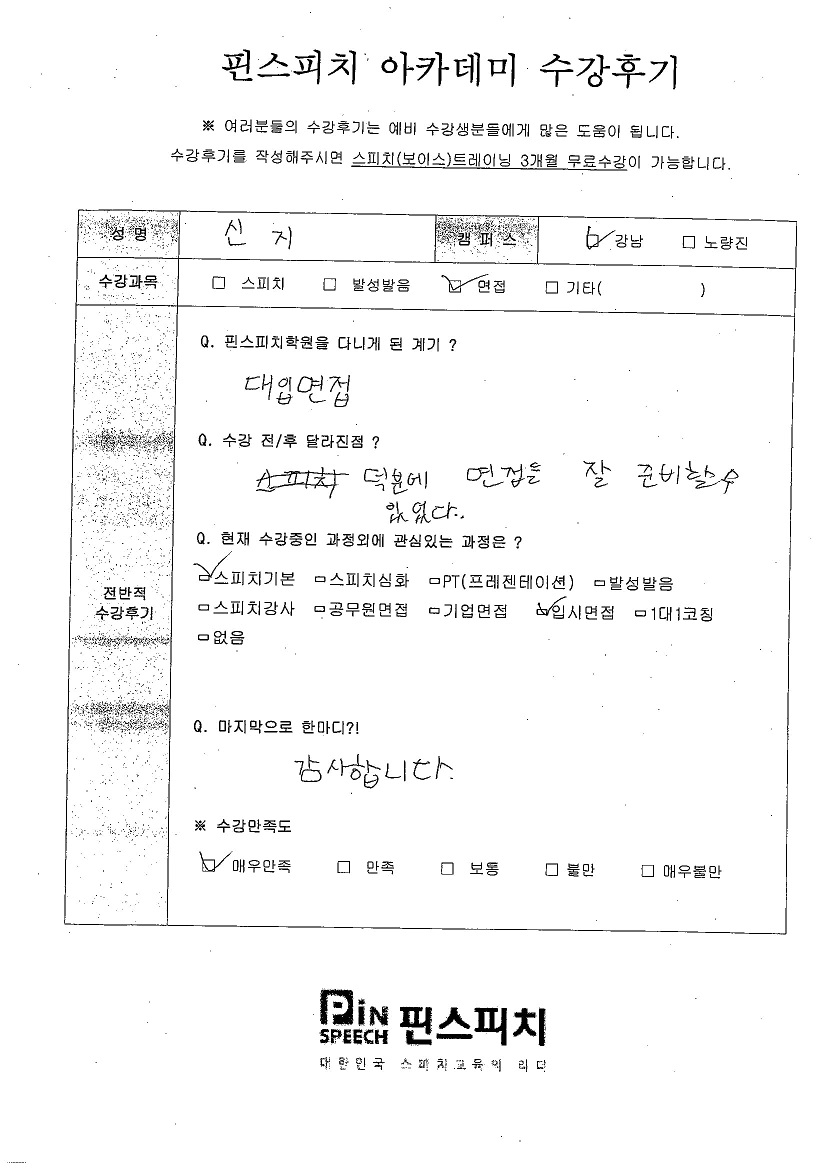 핀스피치 아카데미 수강후기
※ 여러분들의 수강후기는 예비 수강생분들에게 많은 도움이 됩니다.
수강후기를 작성해주시면 스피치(보이스)트레이닝 3개월 무료수강이 가능합니다.
성 명 신 지 캠 퍼 스 ☑ 강남 □ 노량진
수강과목 □ 스피치 □ 발성발음 ☑ 면접 □ 기타( )
Q. 핀스피치학원을 다니게 된 계기 ?
대입면접
Q. 수강 전/후 달라진점 ?
스피치 덕분에 면접을 잘 준비할수
있었다.
Q. 현재 수강중인 과정외에 관심있는 과정은 ?
☑스피치기본 □스피치심화 □PT(프레젠테이션) □발성발음
□스피치강사 □공무원면접 □기업면접 ☑입시면접 □1대1코칭
□없음
전반적
수강후기
Q. 마지막으로 한마디?!
감사합니다.
※ 수강만족도
☑ 매우만족 □ 만족 □ 보통 □ 불만 □ 매우불만
PiN SPEECH 핀스피치
대한민국 스피치교육의 리더